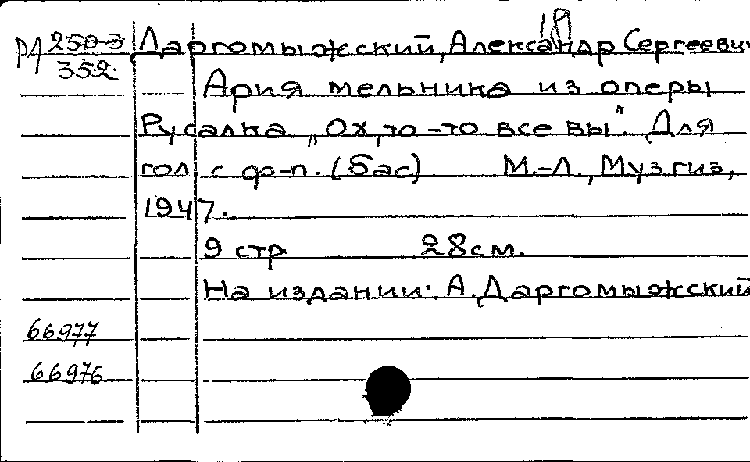 19
РД 250-3 Даргомыжский, Александр Сергеевич
352 Ария мельника из оперы
Русалка „Ох, то-то все вы". Для
гол с ф-п. (бас) М.-Л., Музгиз,
1947.
9 стр 28 см.
На издании: А. Даргомыжский
66977
66976